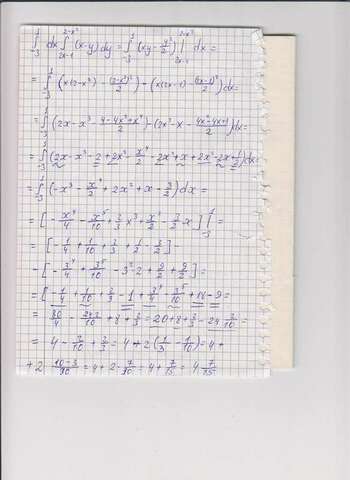 ∫_{-3}^{1} dx ∫_{2x-1}^{2-x²} (x-y) dy = ∫_{-3}^{1} (xy - y²/2) |_{2x-1}^{2-x²} dx =
= ∫_{-3}^{1} (x(2-x²) - (2-x²)²/2) - (x(2x-1) - (2x-1)²/2) dx =
= ∫_{-3}^{1} (2x - x³ - (4-4x²+x⁴)/2) - (2x² - x - (4x²-4x+1)/2) dx =
= ∫_{-3}^{1} (2x - x³ - 2 + 2x² - x⁴/2 - 2x² + x + 2x² - 2x + 1/2) dx =
= ∫_{-3}^{1} (-x³ - x⁴/2 + 2x² + x - 3/2) dx =
= [ - x⁴/4 - x⁵/10 + 2/3 x³ + x²/2 - 3/2 x ] |_{-3}^{1} =
= [ - 1/4 + 1/10 + 2/3 + 1/2 - 3/2 ] -
- [ - 3⁴/4 + 3⁵/10 - 3²·2 + 9/2 + 9/2 ] =
= [ - 1/4 + 1/10 + 2/3 - 1 + 3⁴/4 - 3⁵/10 + 18 - 9 =
= 80/4 - 243/10 + 8 + 2/3 = 20 + 8 + 2/3 - 24 3/10 =
= 4 - 3/10 + 2/3 = 4 + 2 (1/3 - 1/10) = 4 +
+ 2 · (10-3)/30 = 4 + 2 · 7/30 = 4 + 7/15 = 4 7/15